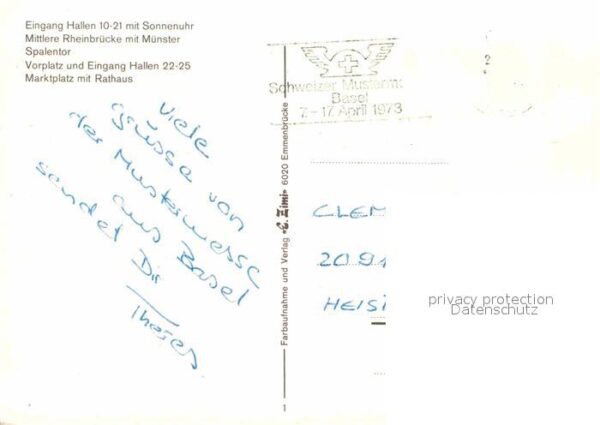 Eingang Hallen 10-21 mit Sonnenuhr
Mittlere Rheinbrücke mit Münster
Spalentor
Vorplatz und Eingang Hallen 22-25
Marktplatz mit Rathaus
Schweizer Musterm
Basel
7.-17. April 1973
2
viele
grüsse von
der Mustermesse
aus Basel
sendet Dir
Farbaufnahme und Verlag «E. Zimi» 6020 Emmenbrücke
CLEM
2091
HEISI
privacy protection
Datenschutz
1